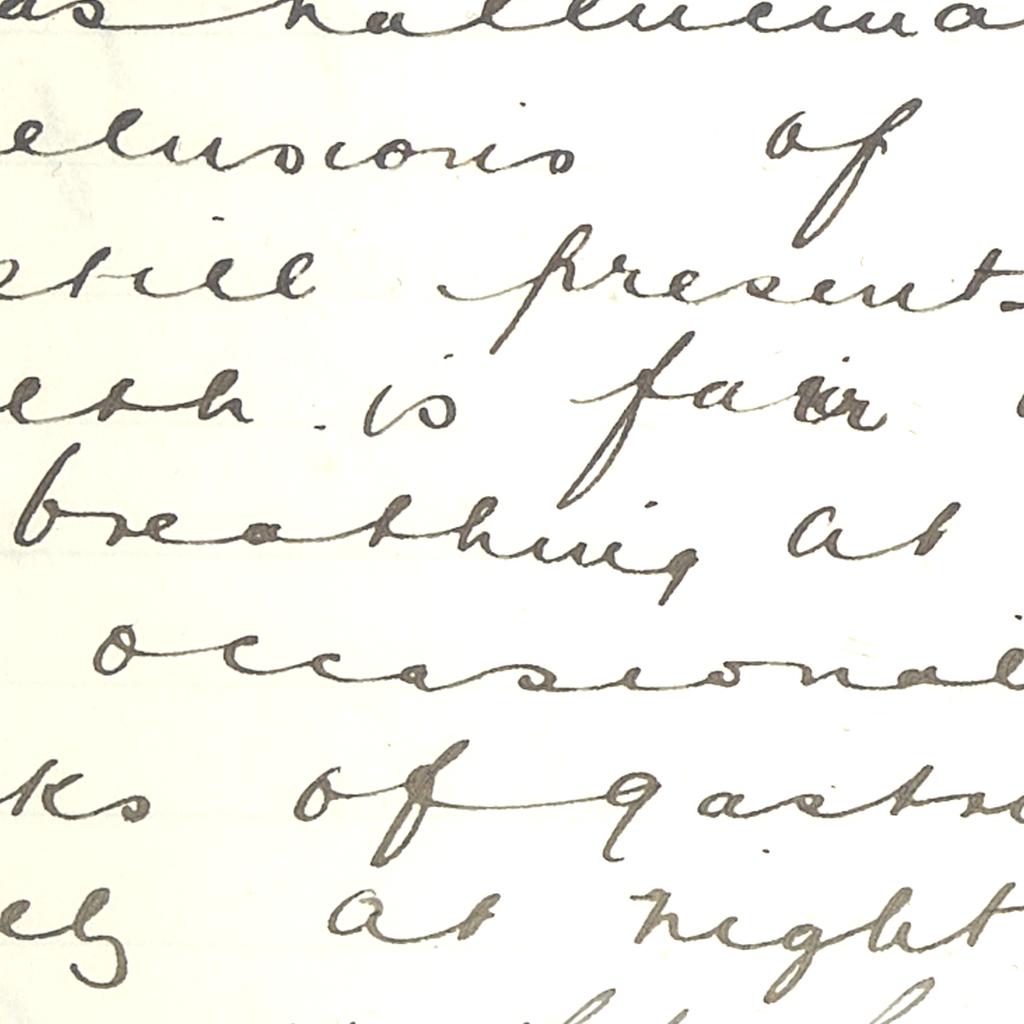 as hallucina
elusions of
still present.
lth . is fair
breathing at
occasional
ks of gastri
ely at night